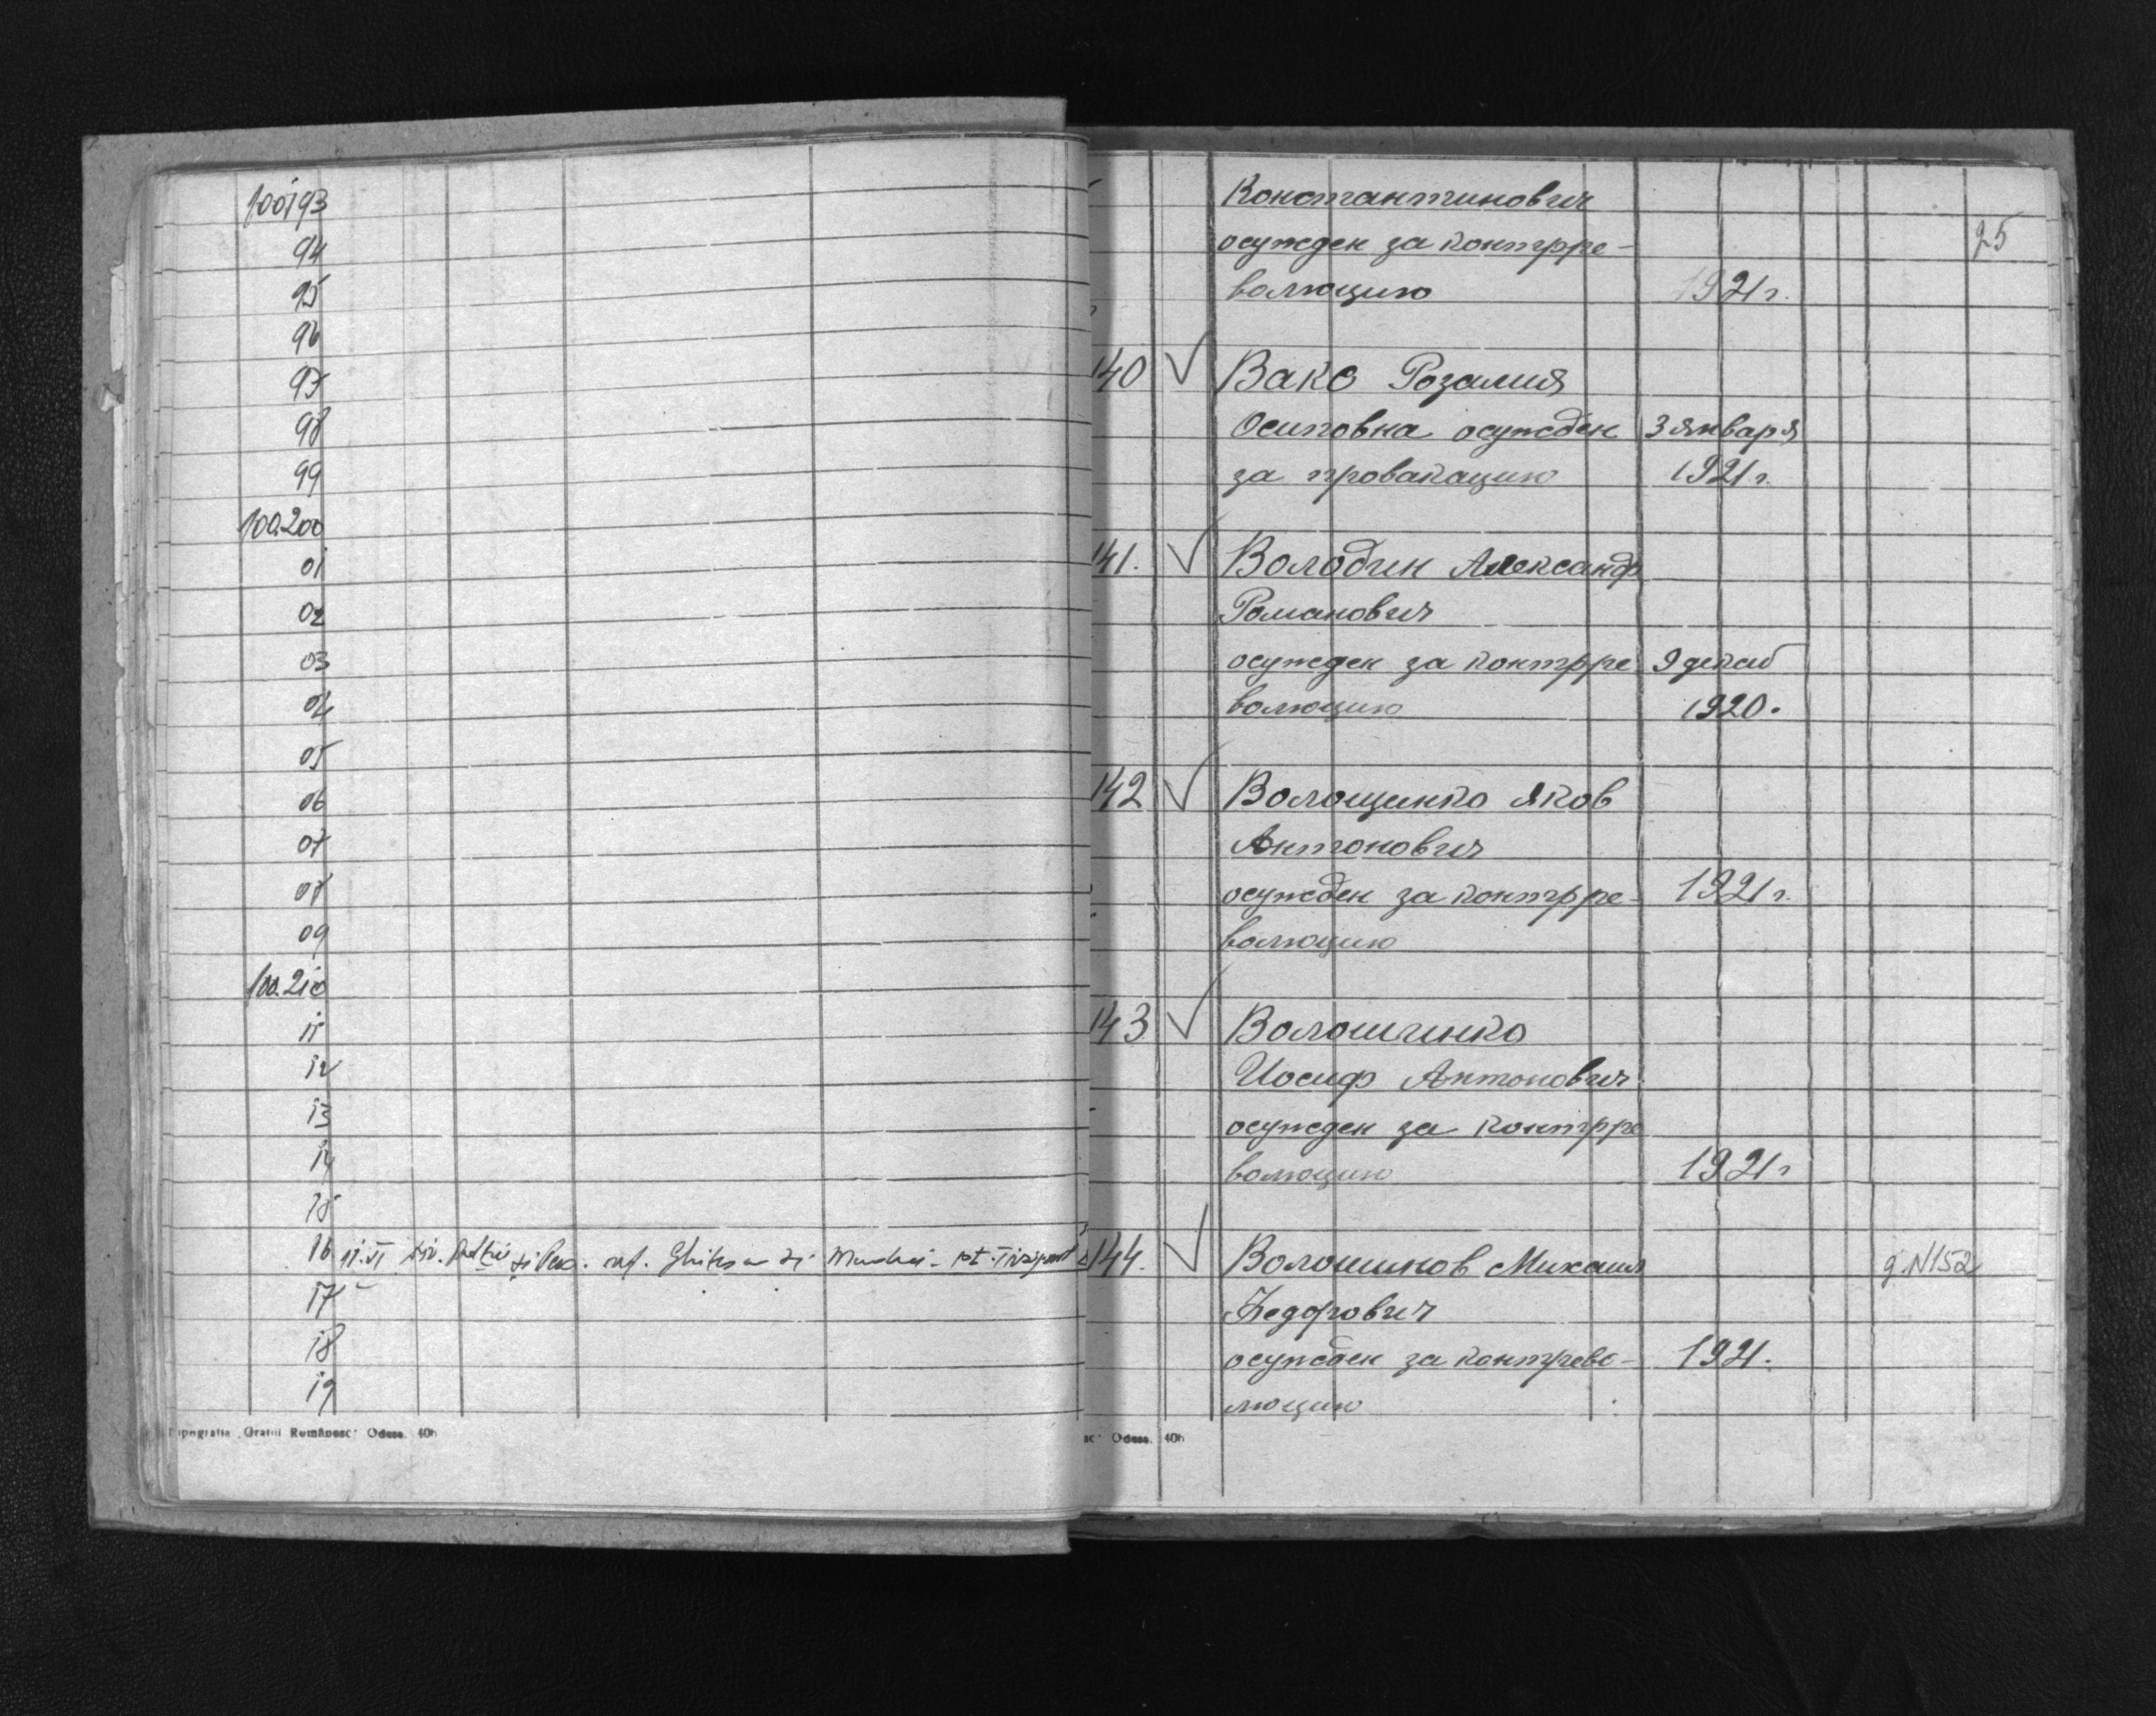 100193
94
95
96
97
98
99
100.200
01
02
03
04
05
06
07
08
09
100.210
11
12
13
14
15
16 11.VI
17
18
19
Tipografia „Graiul Românesc“ Odesa. 40h
25
Константинович
осужден за контрре-
волюцию 1921 г.
140 ✓ Вако Розалия
Осиповна осужден 3 января
за провакацию 1921 г.
141. ✓ Володин Александр
Романович
осужден за контрре 9 декаб
волюцию 1920.
142 ✓ Волощинко Яков
Антонович
осужден за контрре- 1921 г.
волюцию
143 ✓ Волошинко
Иосиф Антонович
осужден за контрре
волюцию 1921 г
144. ✓ Волошинов Михаил д. N152
Федорович
осужден за контрево- 1921.
люцию
Odesa. 40h